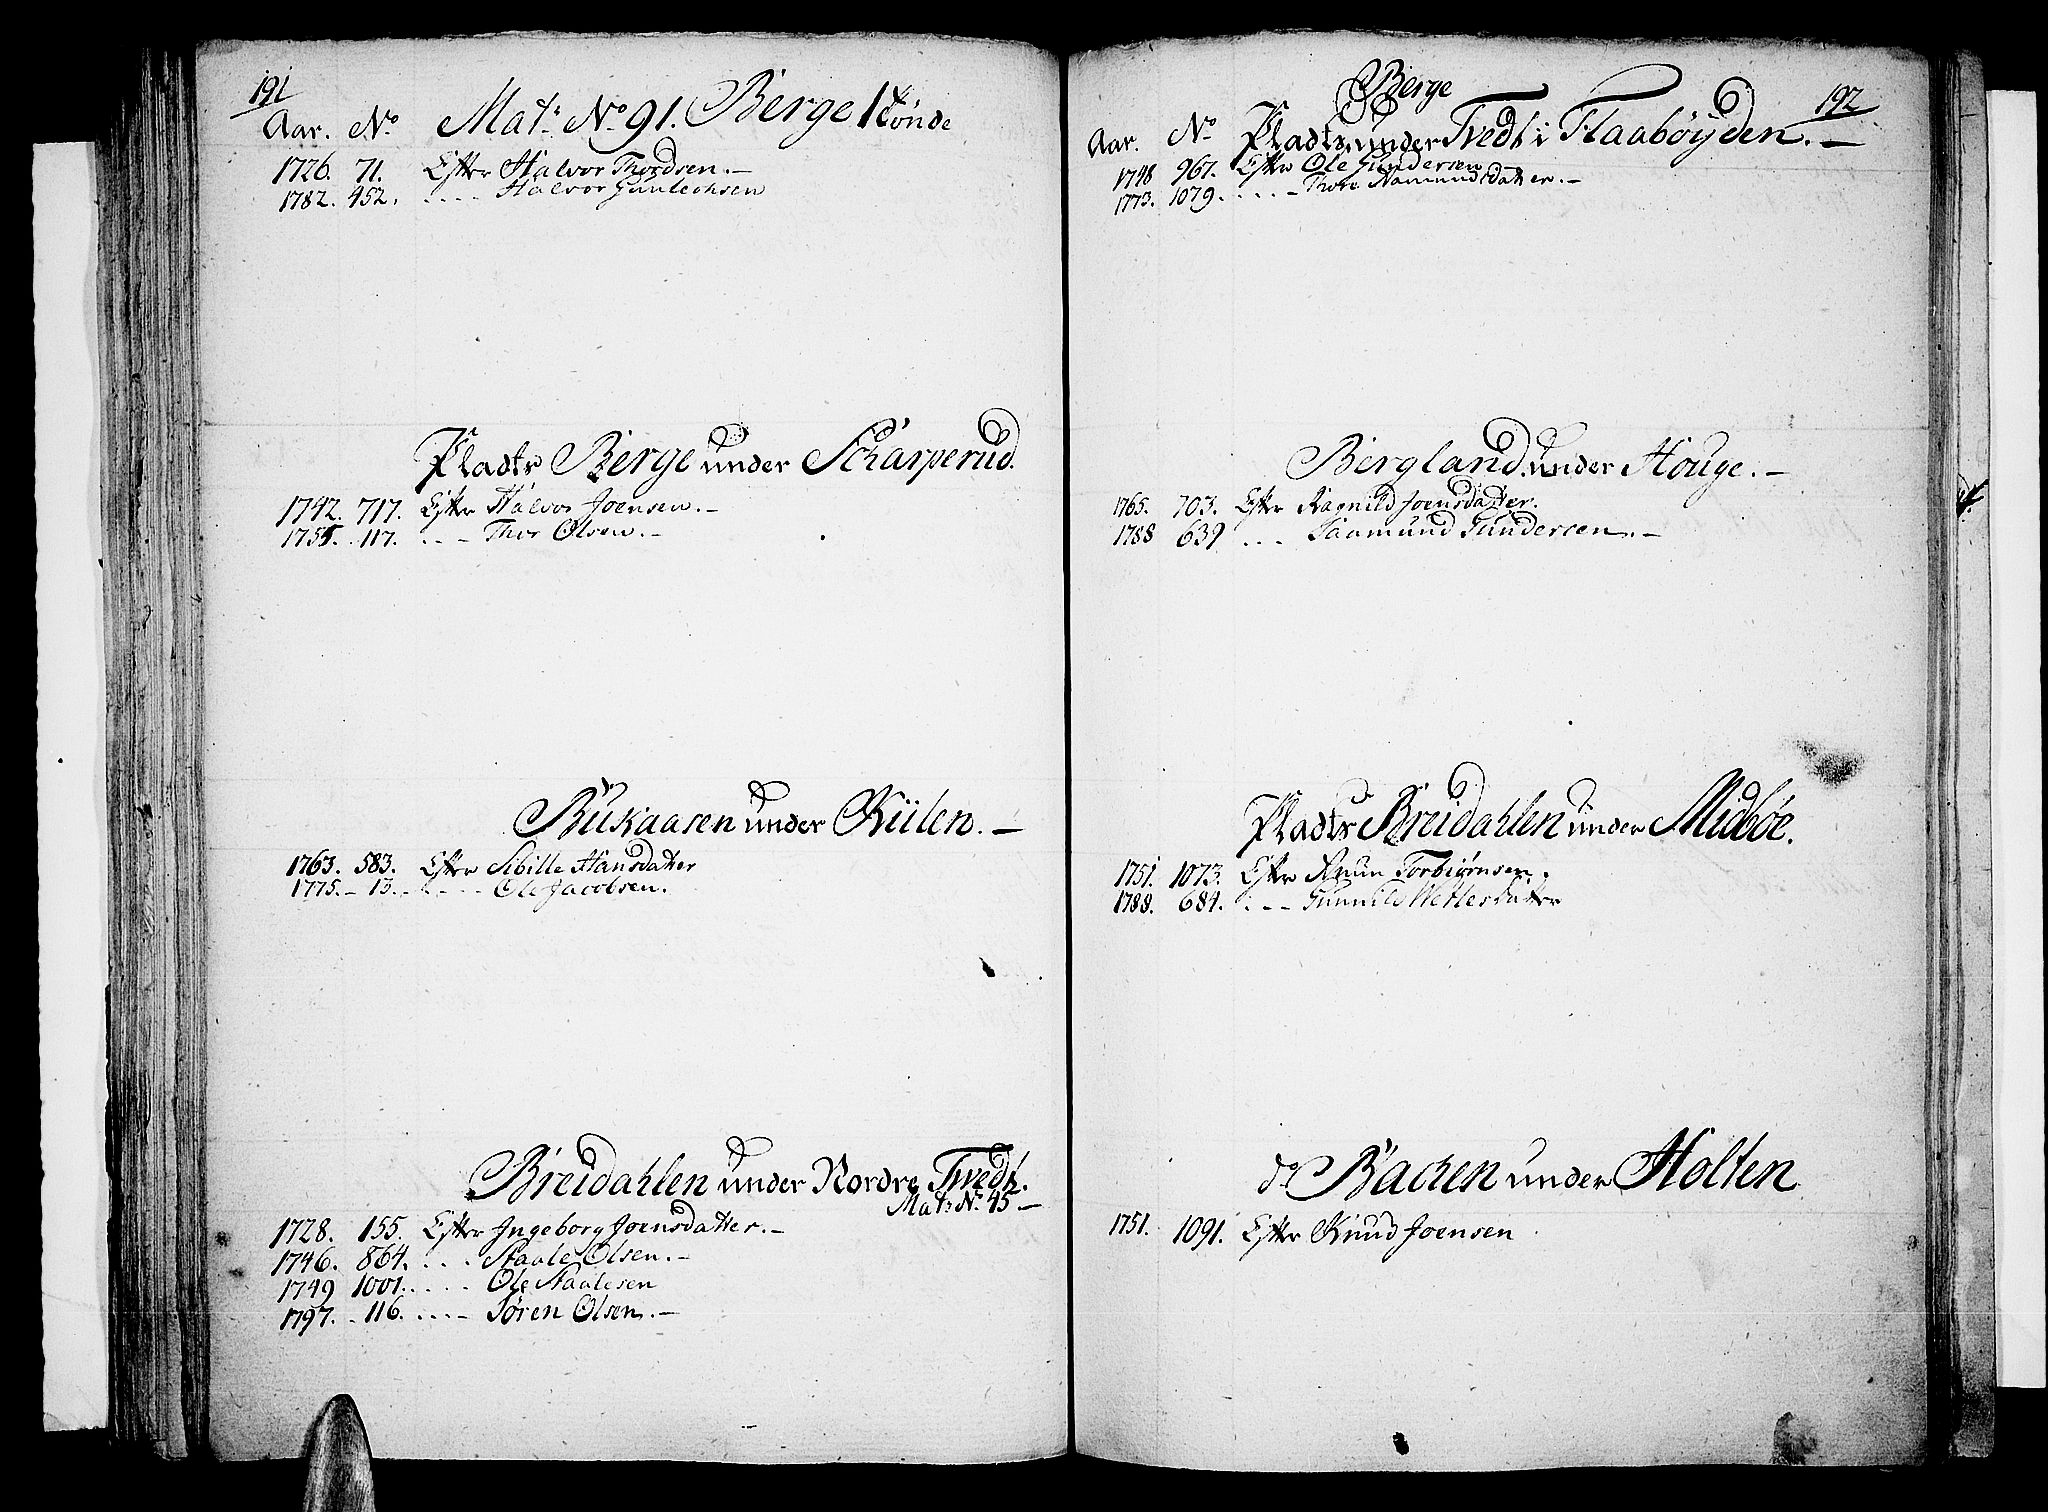 191
Aar. No Mat: No 91. Berge 1 tønde
1726. 71. Efter Halvor Thordsen. –
1782. 452. . . . . Halvor Gunleichsen
Pladts Berge under Scharperud.
1742. 717. Efter Halvor Joensen. –
1755. 117. . . – Thor Olsen. –
Bukaasen under Kiilen. –
1763. 583. Efter Sibille Hansdatter
1775. – 13. . . . . Ole Jacobsen.
Breidahlen under Nordre Tvedt.
Mats No 45 –
1728. 155. Efter Ingeborg Joensdatter. –
1746. 864. . . . Staale Olsen. –
1749 1001. . . . . Ole Staalesen
1797. – 116. . . . – Søren Olsen. –
192
Berge
Aar. No Pladts under Tvedt i Flaabøyden. –
1748 967. Efter Ole Gundersen
1773. 1079. . . . . – Thore Aamundsdatter. –
Bergland under Houge. –
1765. 703. Efter Ragnild Joensdatter.
1788 639 . . . Saamund Gundersen. –
Pladts Breidahlen under Midbøe.
1751. 1073. Efter Anun Torbiørnsen.
1788. 684. . – – Gunnild Wetlesdatter
do Bachen under Holten
1751. 1091. Efter Knud Joensen